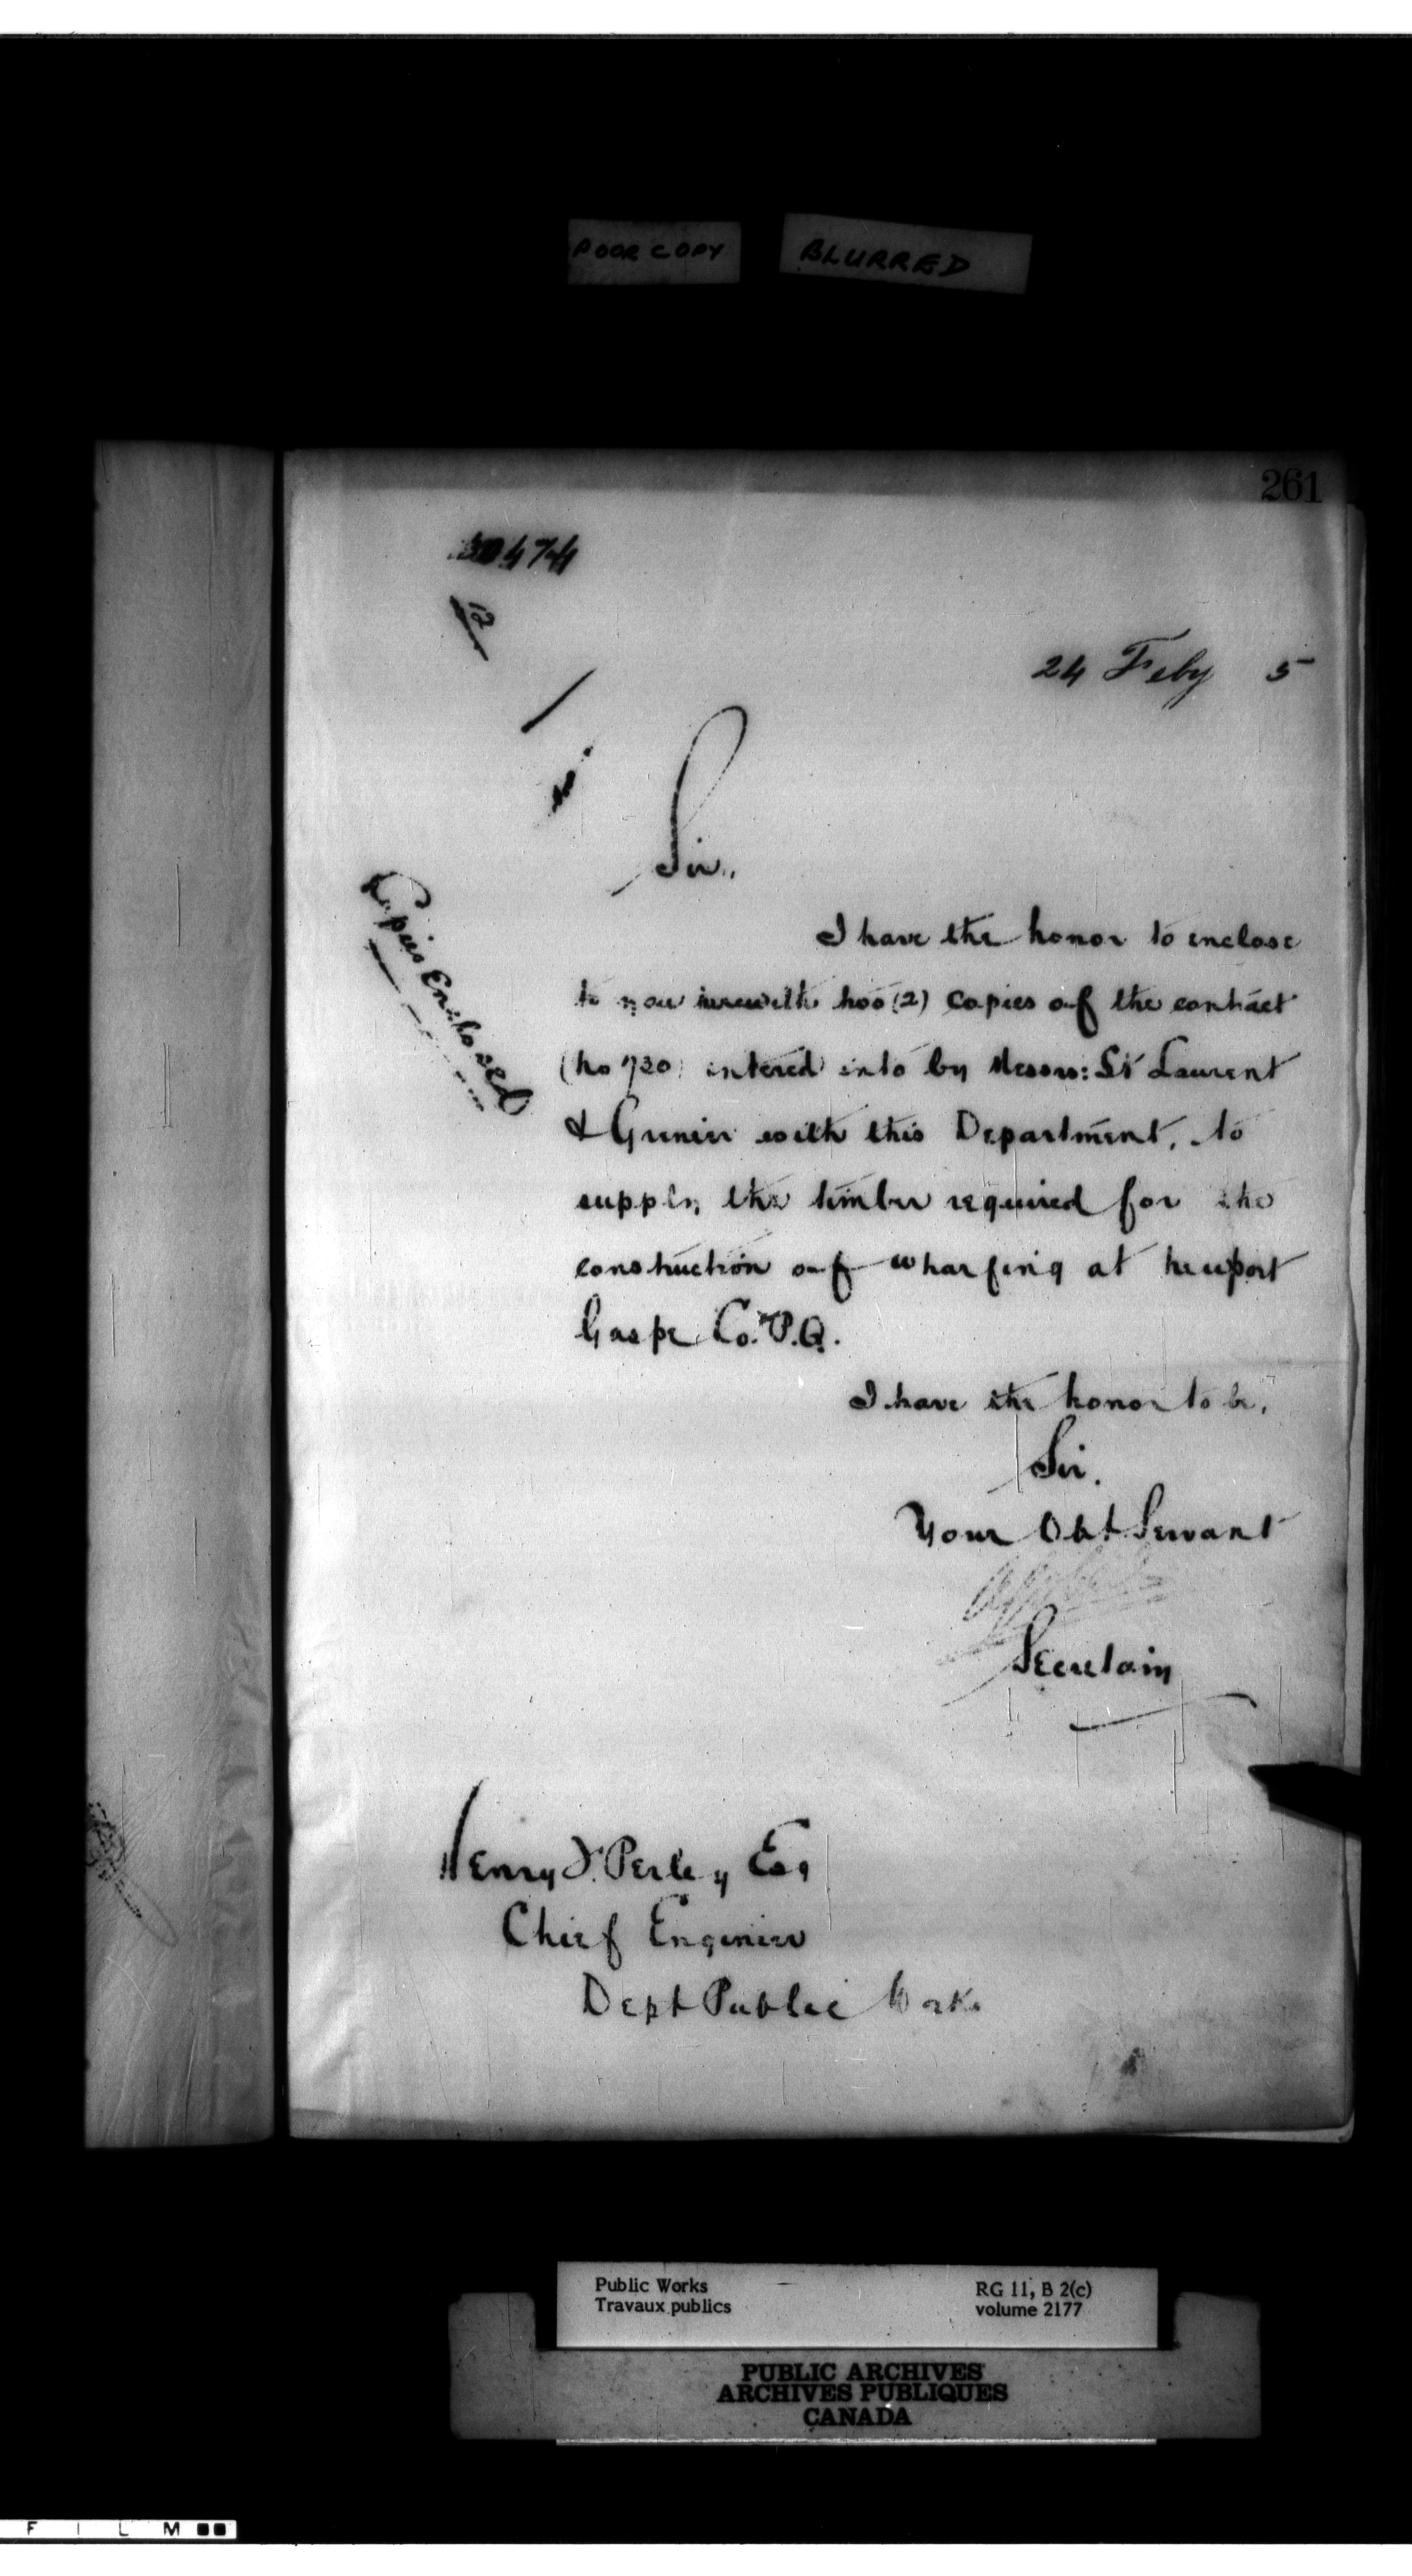 POOR COPY BLURRED
261
24 Feby 5
Sir,
Copies Enclosed
I have the honor to enclose
to you herewith two (2) Copies of the contract
(No 720) entered into by Messrs: St Laurent
& Grenier with this Department, to
supply the timber required for the
construction of wharfing at Newport
Gaspe Co. P.Q.
I have the honor to be,
Sir,
Your Obt Servant
Secretary
Henry F. Perley Esq
Chief Engineer
Dept Public Works
Public Works RG 11, B 2(c)
Travaux publics volume 2177
PUBLIC ARCHIVES
ARCHIVES PUBLIQUES
CANADA
F I L M